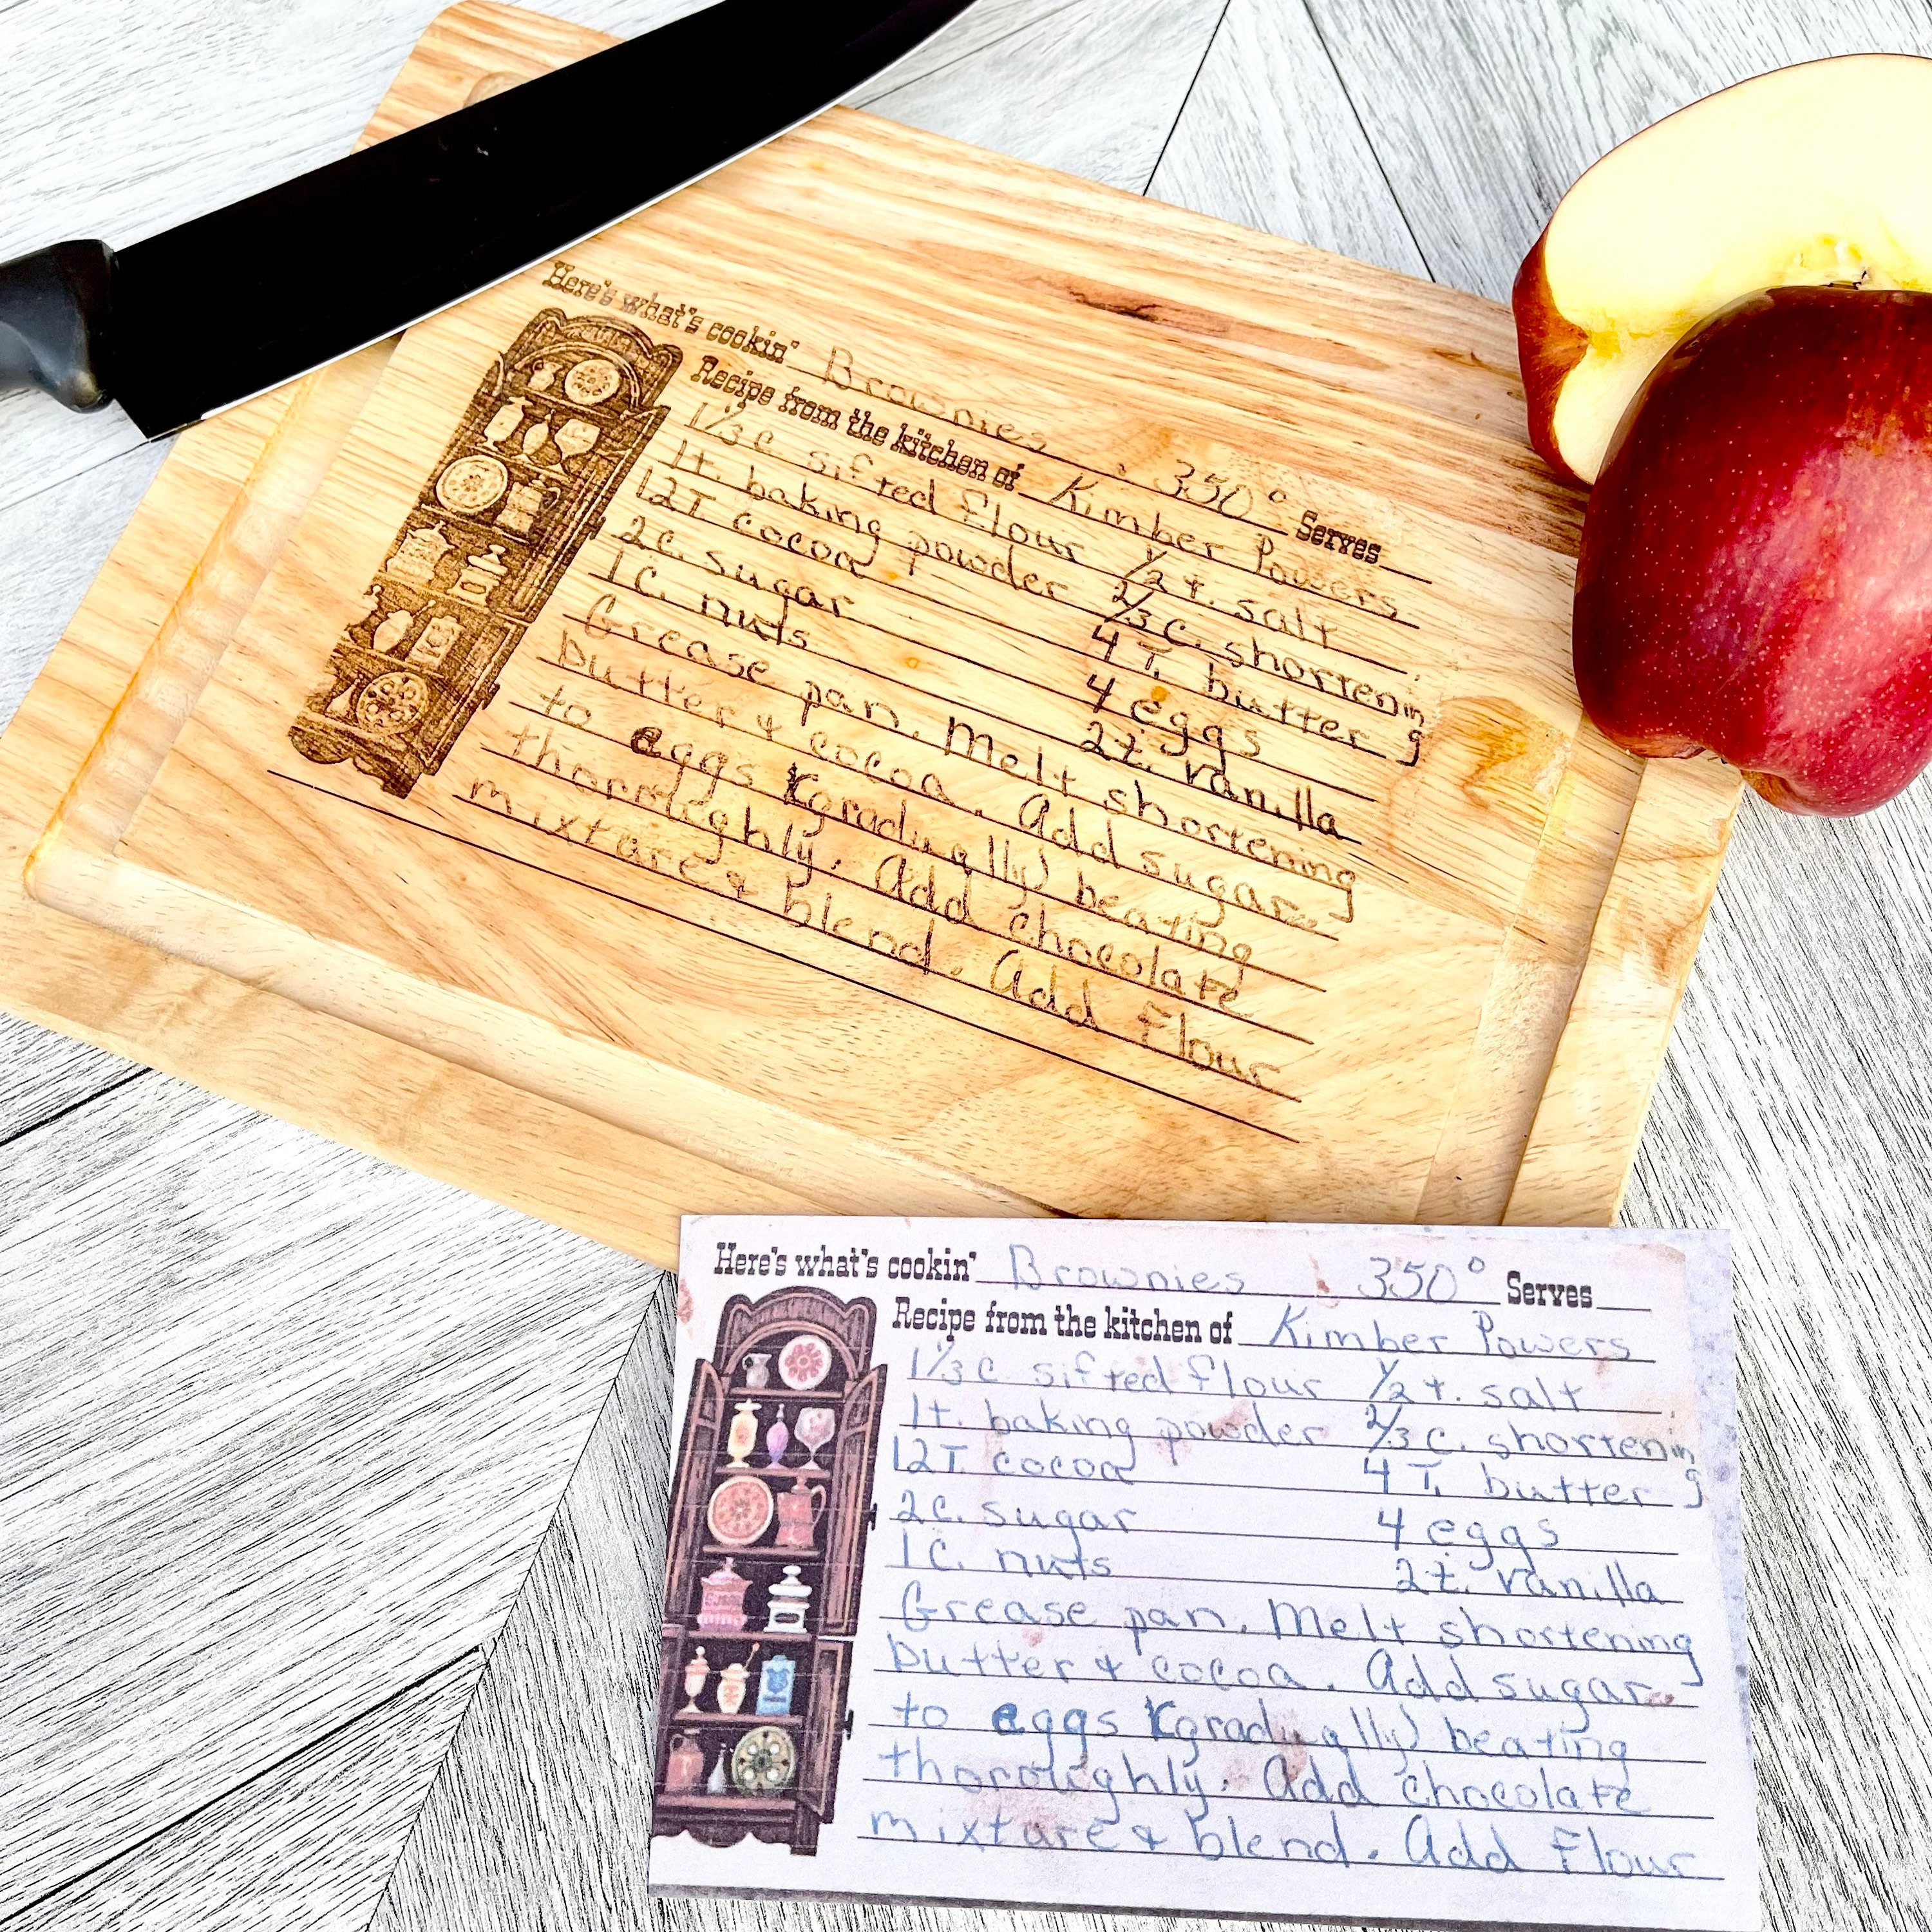 Here's what's cookin' Brownies 350° Serves
Recipe from the kitchen of Kimber Powers
1 1/3 c sifted flour 1/2 t. salt
1t. baking powder 2/3 c. shortening
12T. cocoa 4 T. butter
2c. sugar 4 eggs
1c. nuts 2t. vanilla
Grease pan. Melt shortening
butter & cocoa. Add sugar
to eggs (gradually) beating
thoroughly. Add chocolate
mixture & blend. Add flour
Here's what's cookin' Brownies 350° Serves
Recipe from the kitchen of Kimber Powers
1 1/3 c sifted flour 1/2 t. salt
1t. baking powder 2/3 c. shortening
12T. cocoa 4 T. butter
2c. sugar 4 eggs
1c. nuts 2t. vanilla
Grease pan. Melt shortening
butter & cocoa. Add sugar
to eggs (gradually) beating
thoroughly. Add chocolate
mixture & blend. Add flour